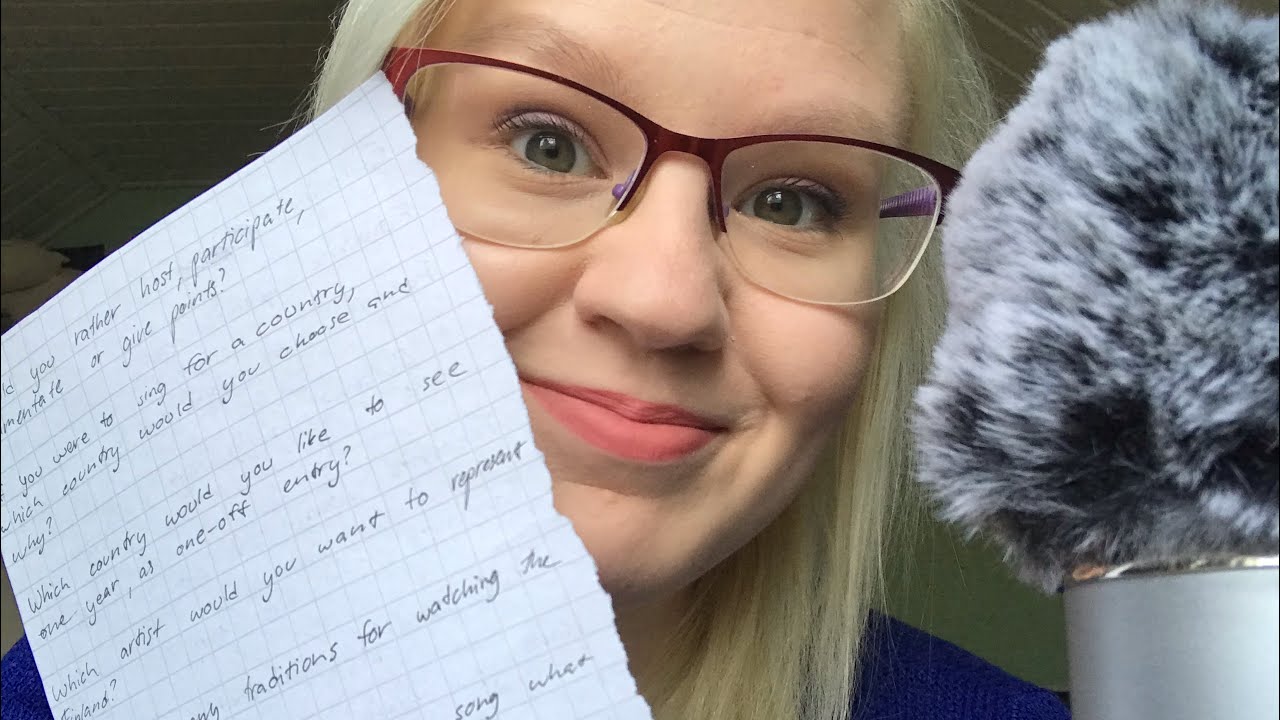 you rather host, participate,
or give points?
you were to sing for a country,
which country would you choose and
why?
Which country would you like to see
one year, as one-off entry?
Which artist would you want to represent
Finland?
traditions for watching the
song what